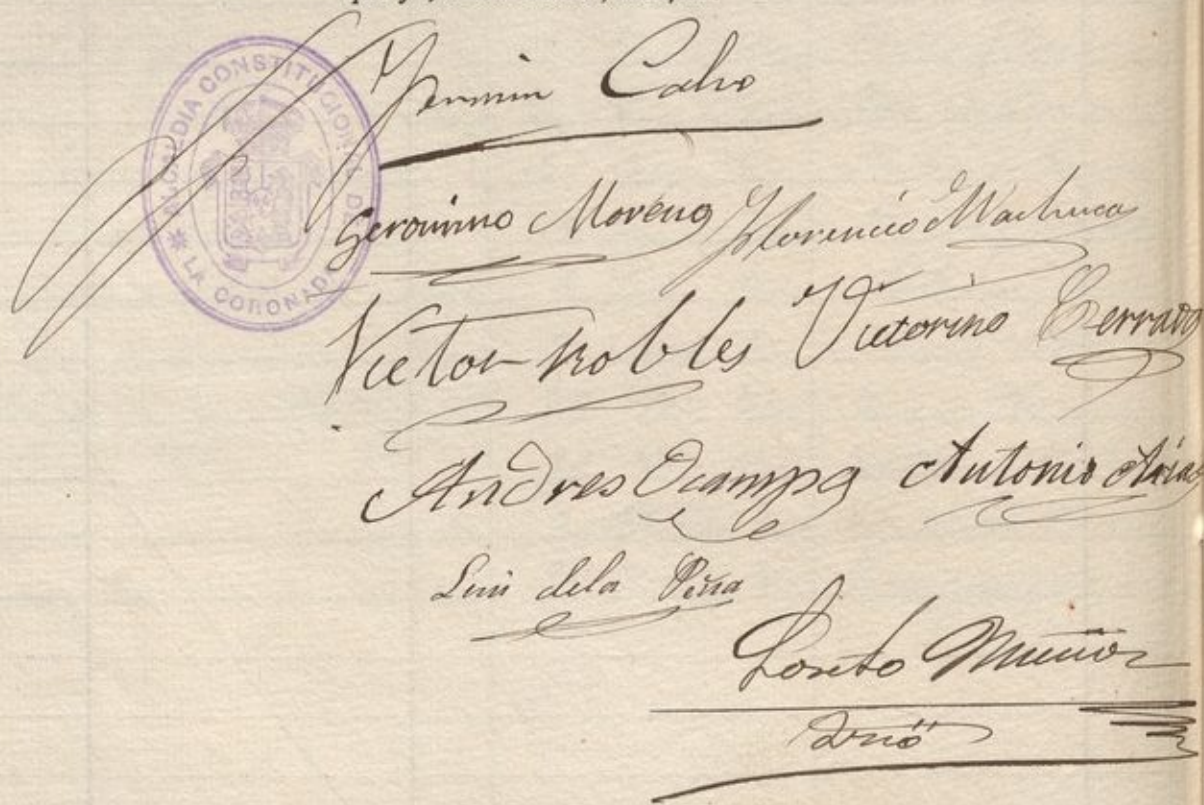 ALCALDIA CONSTITUCIONAL DE
* LA CORONADA
Fermin Calvo
Geronimo Moreno Florencio Machuca
Victor Robles Victorino Cerrato
Andres Ocampo Antonio Arias
Luis dela Peña
Loreto Muñoz
Srio